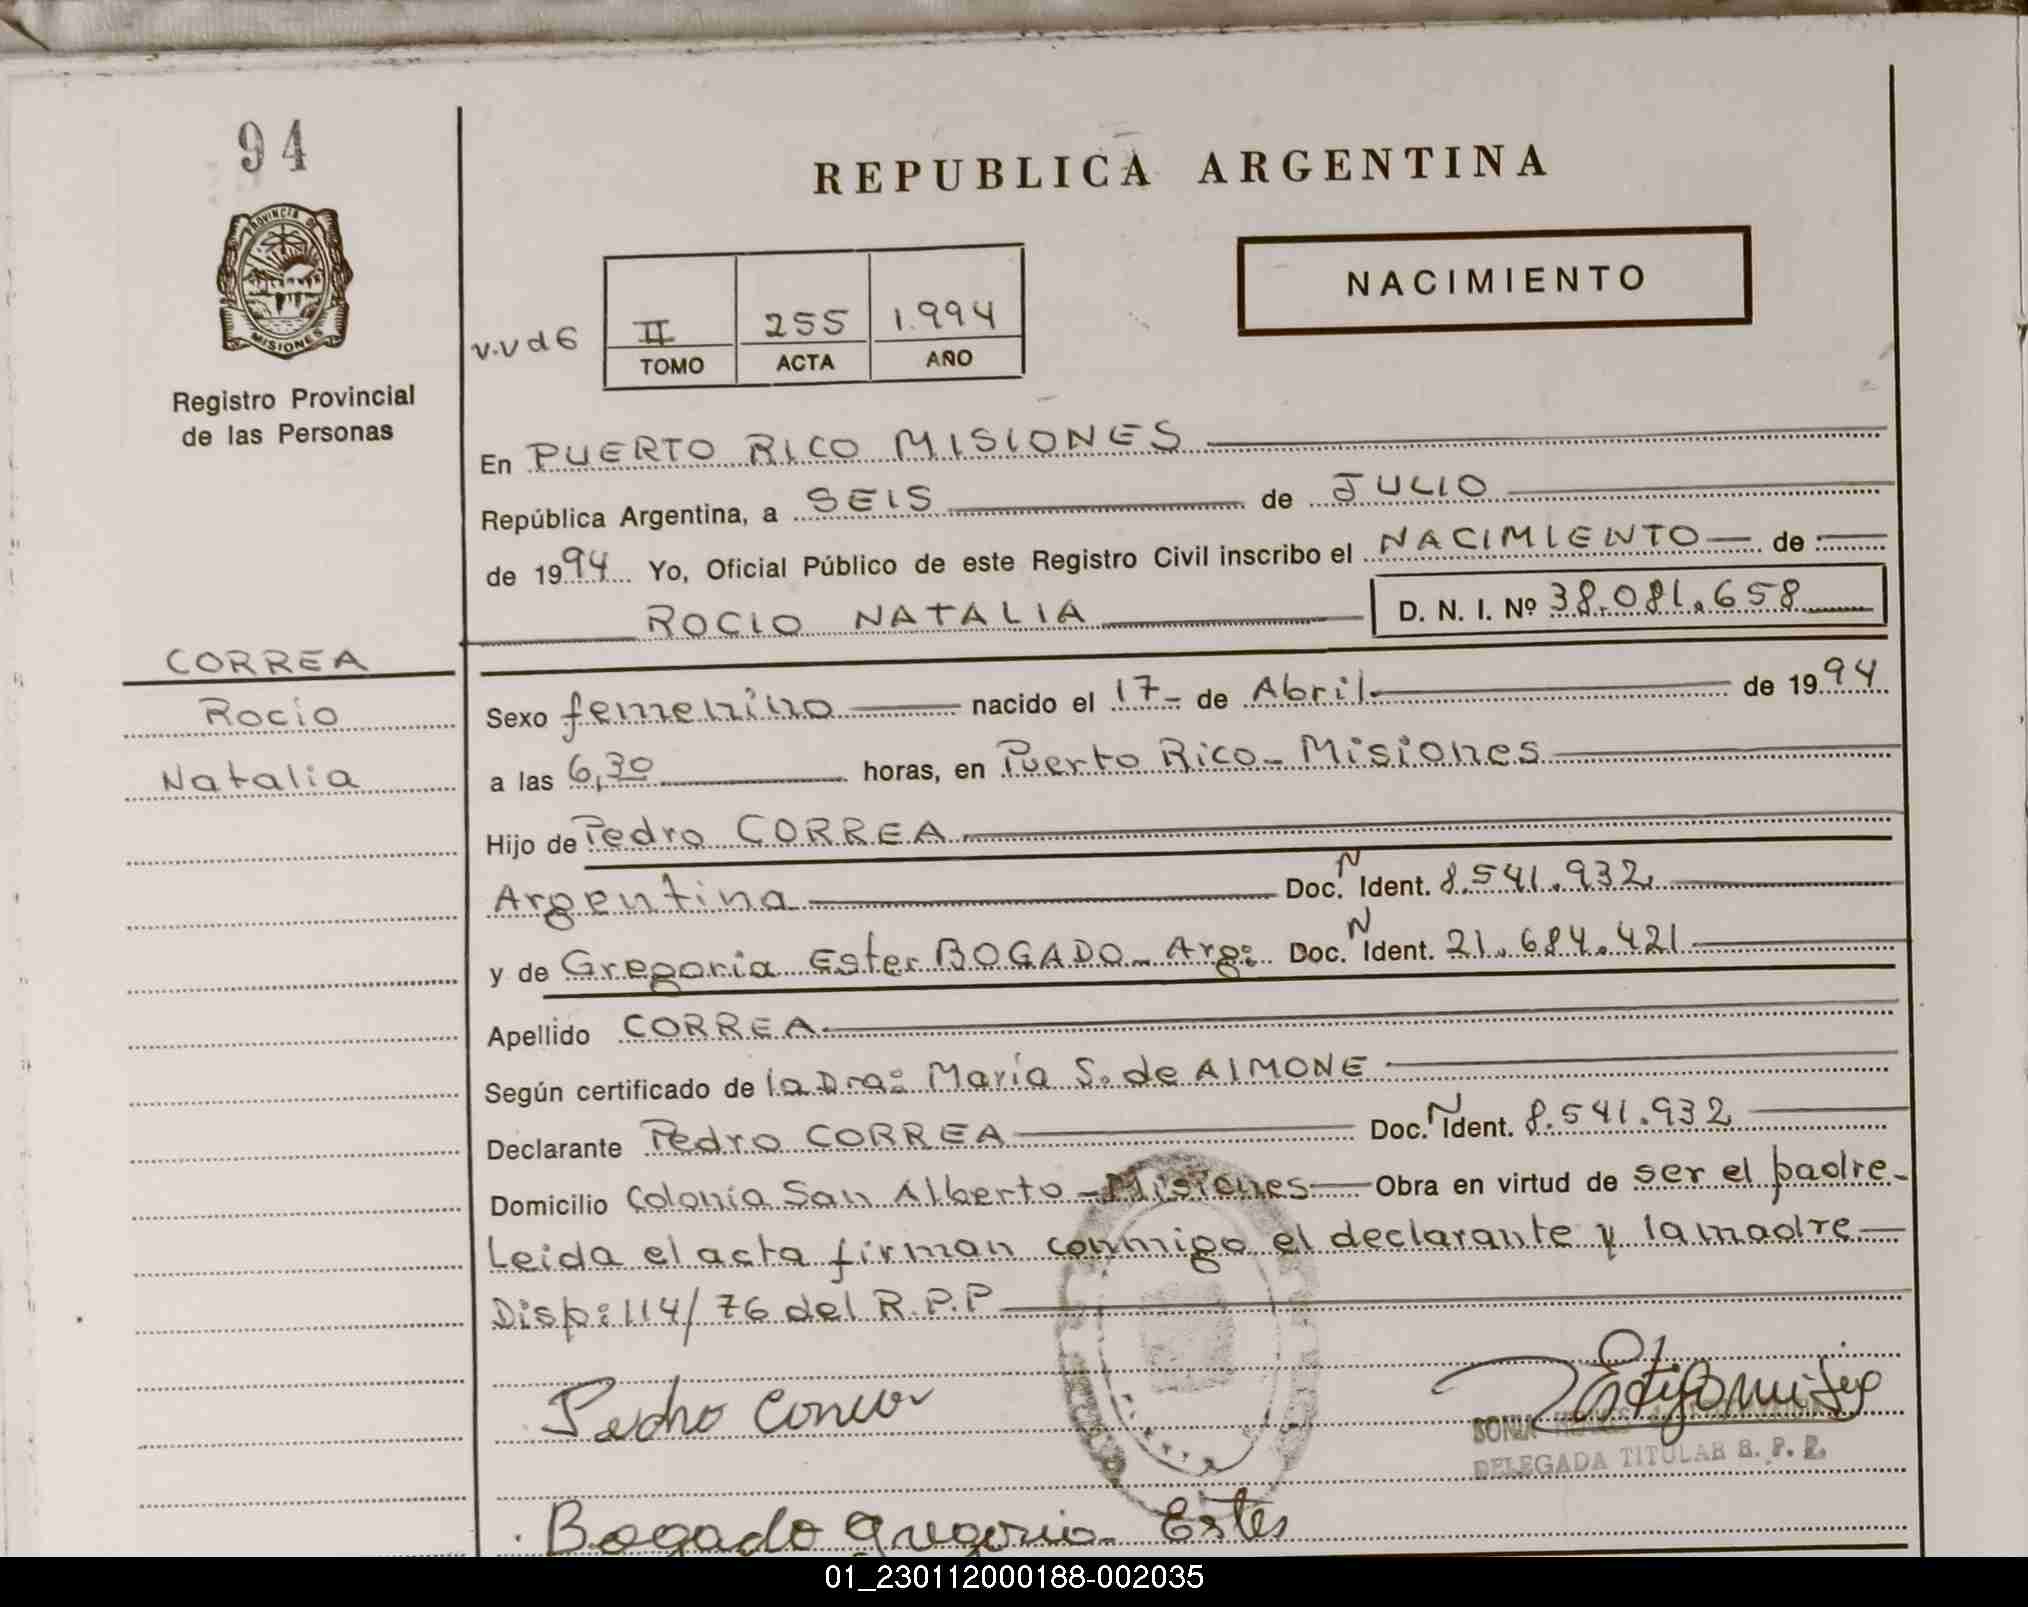 94
PROVINCIA DE
MISIONES
Registro Provincial
de las Personas
REPUBLICA ARGENTINA
NACIMIENTO
v.v d6
II 255 1.994
TOMO ACTA AÑO
En PUERTO RICO MISIONES
República Argentina, a SEIS de JULIO
de 1994 Yo, Oficial Público de este Registro Civil inscribo el NACIMIENTO de
ROCIO NATALIA D. N. I. Nº 38.081.658
CORREA
Rocio
Natalia
Sexo femenino nacido el 17 de Abril de 1994
a las 6,30 horas, en Puerto Rico - Misiones
Hijo de Pedro CORREA
Argentina Doc. N Ident. 8.541.932
y de Gregoria Ester BOGADO - Arg: Doc. N Ident. 21.684.421
Apellido CORREA
Según certificado de la Dra: María S. de AIMONE
Declarante Pedro CORREA Doc. N Ident. 8.541.932
Domicilio Colonia San Alberto - Misiones Obra en virtud de ser el padre
Leida el acta firman conmigo el declarante y la madre
Disp: 114/76 del R.P.P
Pedro Correa
SONIA
DELEGADA TITULAR R. P. P.
Bogado Gregoria Ester
01_230112000188-002035